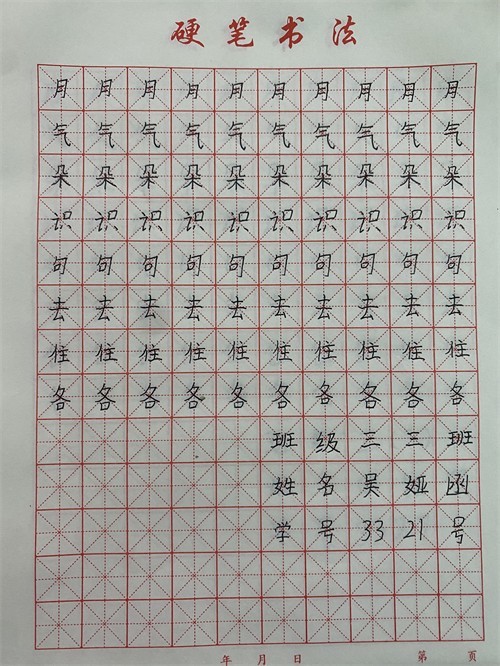 硬笔书法
月月月月月月月月月月
气气气气气气气气气气
朵朵朵朵朵朵朵朵朵朵
识识识识识识识识识识
句句句句句句句句句句
去去去去去去去去去去
住住住住住住住住住住
各各各各各各各各各各
班级三三班
姓名吴娅函
学号3321号
年 月 日 第 页